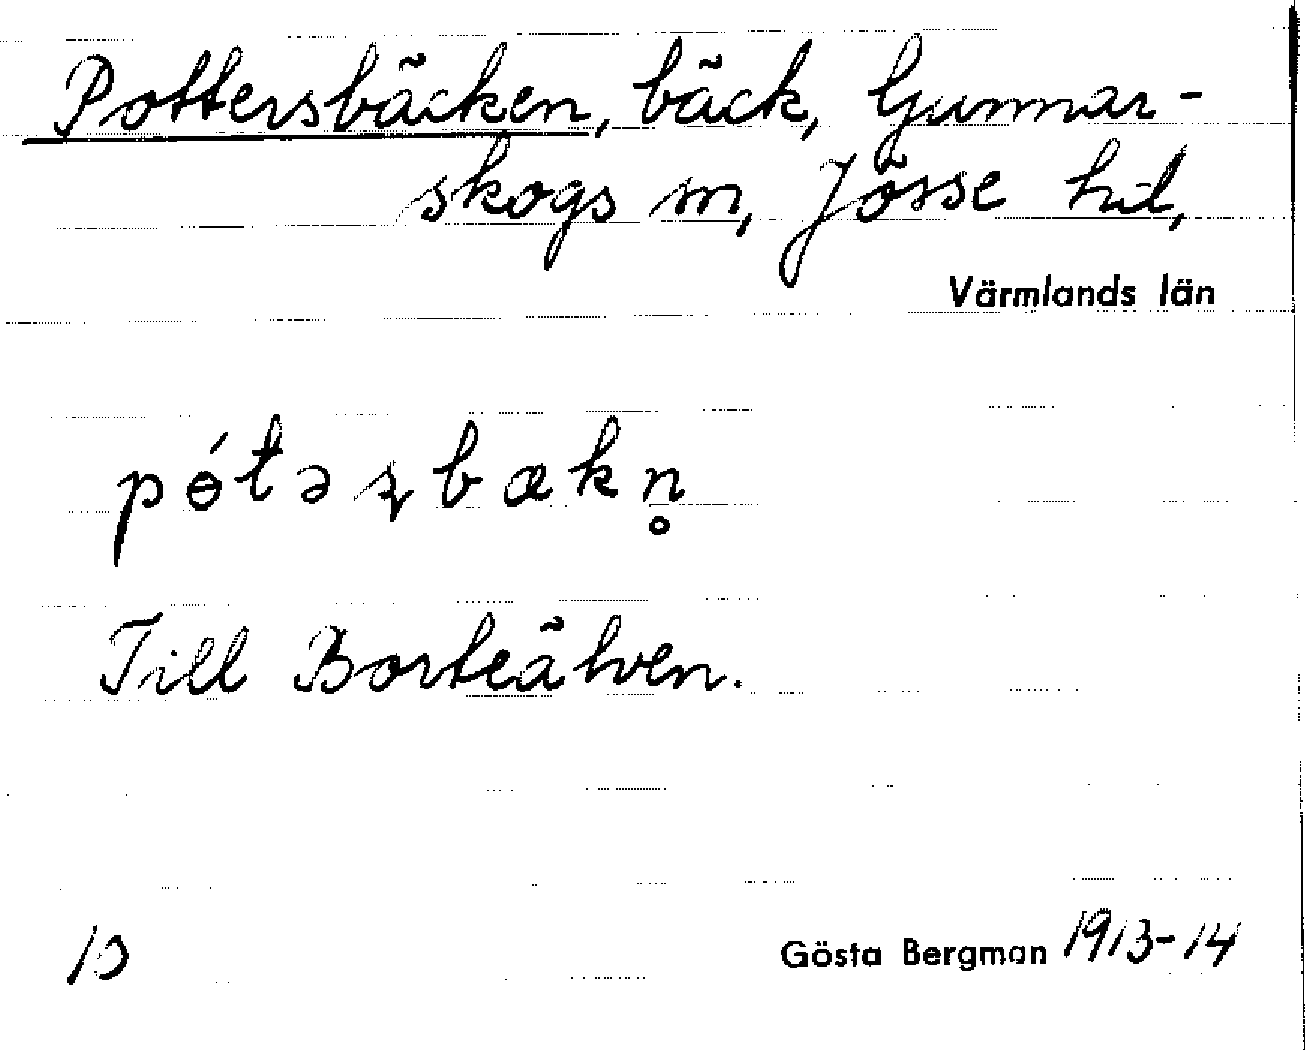 Pottersbäcken, bäck, Gunnar-
skogs sn, Jösse hd,
Värmlands län
pɵ́təʂbækn̥
Till Borteälven.
10
Gösta Bergman 1913-14